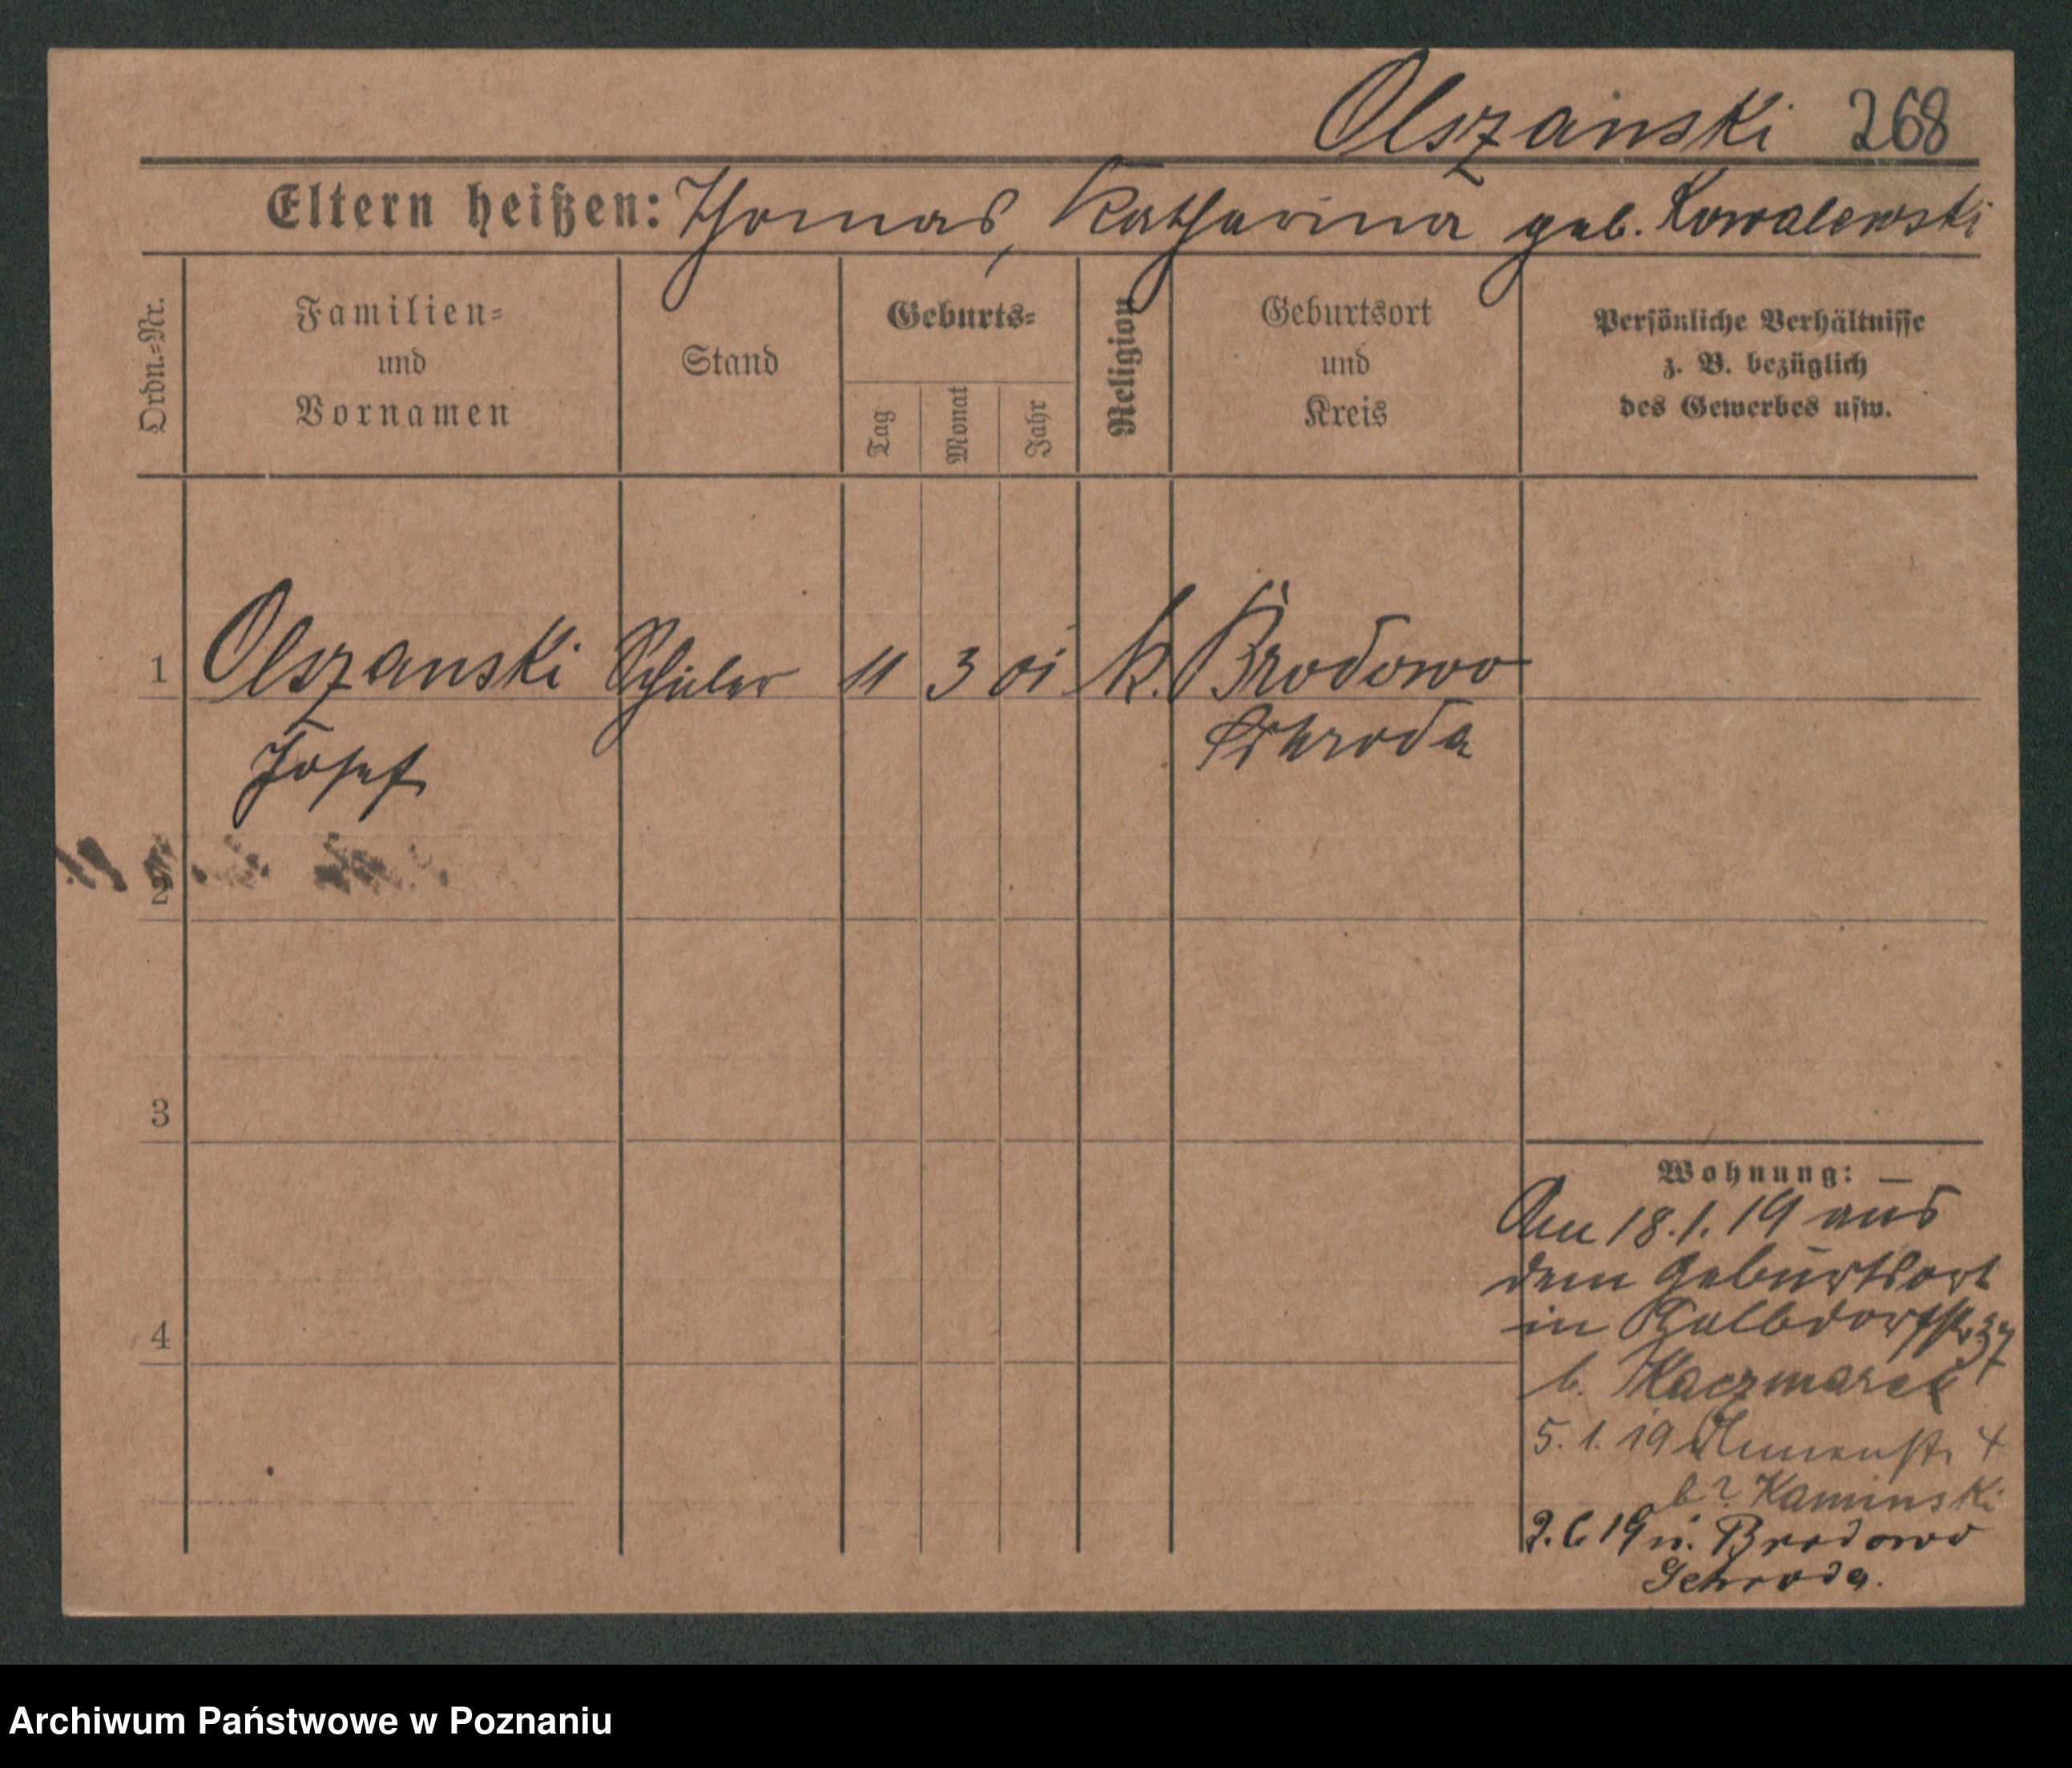 Olszanski 268
Eltern heißen: Thomas, Katharina geb. Kowalewski
Ordn.=Nr.
Familien=
und
Vornamen
Stand
Geburts=
Tag
Monat
Jahr
Religion
Geburtsort
und
Kreis
Persönliche Verhältnisse
z. B. bezüglich
des Gewerbes usw.
1 Olszanski Schüler 11 3 01 k. Brodowo
Josef Schroda
2
3
4
Wohnung: —
Am 18.1.19 aus
dem Geburtsort
in 37
b. Kaczmarek
5.1.19 4
b. Kaminski
2.6.19 n. Brodowo
Schroda.
Archiwum Państwowe w Poznaniu